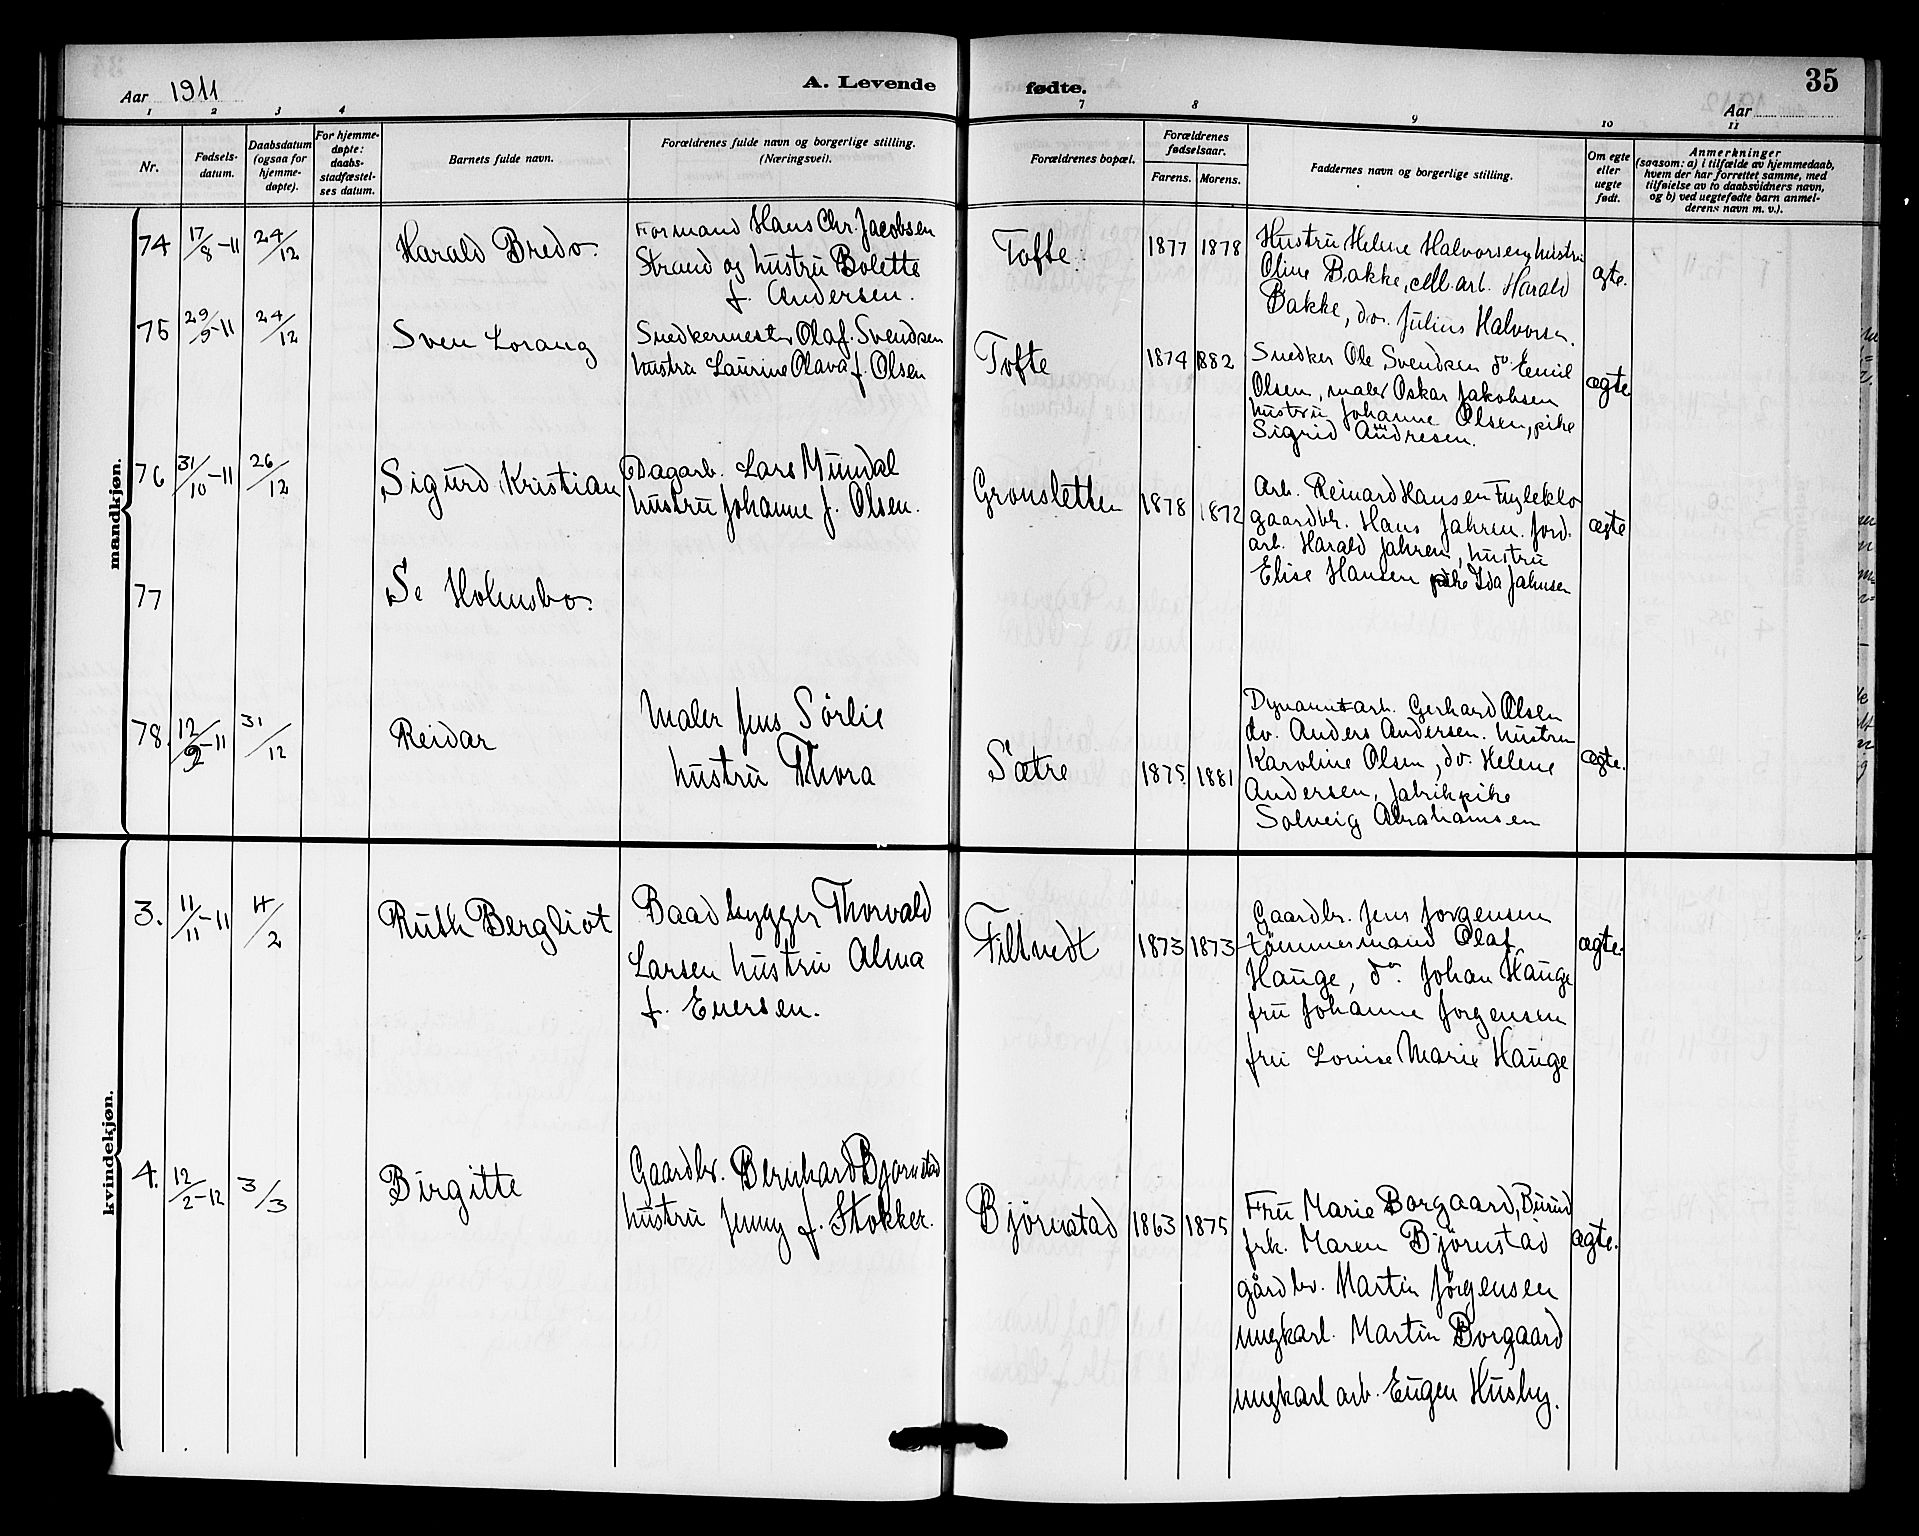 Aar 1911
A. Levende
fødte.
35
Aar
1 2 3 4
7 8 9 10 11
Nr.
Fødsels-
datum.
Daabsdatum
(ogsaa for
hjemme-
døpte).
For hjemme-
døpte:
daabs-
stadfæstel-
ses datum.
Barnets fulde navn.
Forældrenes fulde navn og borgerlige stilling.
(Næringsvei).
Forældrenes bopæl.
Forældrenes
fødselsaar.
Farens. Morens.
Faddernes navn og borgerlige stilling.
Om egte
eller
uegte
født.
Anmerkninger
(saasom: a) i tilfælde av hjemmedaab,
hvem der har forrettet samme, med
tilføielse av to daabsvidners navn,
og b) ved uegtefødte barn anmel-
derens navn m. v.).
mandkjøn.
74 17/8-11 24/12
Harald Bredo
Formand Hans Chr. Jacobsen
Strand og hustru Bolette
f. Andersen.
Tofte 1877 1878
Hustru Helene Halvorsen, hustru
Oline Bakke, cell. arb. Harald
Bakke, do. Julius Halvorsen.
ægte.
75 29/9-11 24/12
Sven Lorang
Snedkermester Olaf Svendsen
hustru Laurine Olava f. Olsen
Tofte 1874 1882
Snedker Ole Svendsen do Emil
Olsen, maler Oskar Jakobsen
hustru Johanne Olsen, pike
Sigrid Andresen.
ægte
76 31/10-11 26/12
Sigurd Kristian
Dagarb. Lars Mundal
hustru Johanne f. Olsen.
Grønsletten 1878 1872
Arb. Reinard Hansen Fuglekło
gaardbr. Hans Jahren. Jord.
arb. Harald Jahren, hustru
Elise Hansen pike Ida Jahnsen
ægte
77
Se Holmsbo
78. 12/9-11 31/12
Reidar
Maler Jens Sørlie
hustru Thora
Sætre 1875 1881
Dynamitarb. Gerhard Olsen
do. Anders Andersen. hustru
Karoline Olsen, do. Helene
Andersen, fabrikpike
Solveig Abrahamsen
ægte.
kvindekjøn.
3. 11/11-11 11/2
Ruth Bergliot
Baadbygger Thorvald
Larsen hustru Alma
f. Eversen.
Filtvedt 1873 1873
Gaardbr. Jens Jørgensen
tømmermand Olaf
Hauge, do Johan Hauge
fru Johanne Jorgensen
fru Louise Marie Hauge
ægte.
4. 12/2-12 3/3
Birgitte
Gaardbr. Bernhard Bjørnstad
hustru Jenny f. Stokker.
Bjørnstad 1863 1875
Fru Marie Borgaard, Burud
frk. Maren Bjørnstad
gårdbr. Martin Jørgensen
ungkarl. Martin Borgaard
ungkarl arb. Eugen Husby.
ægte.